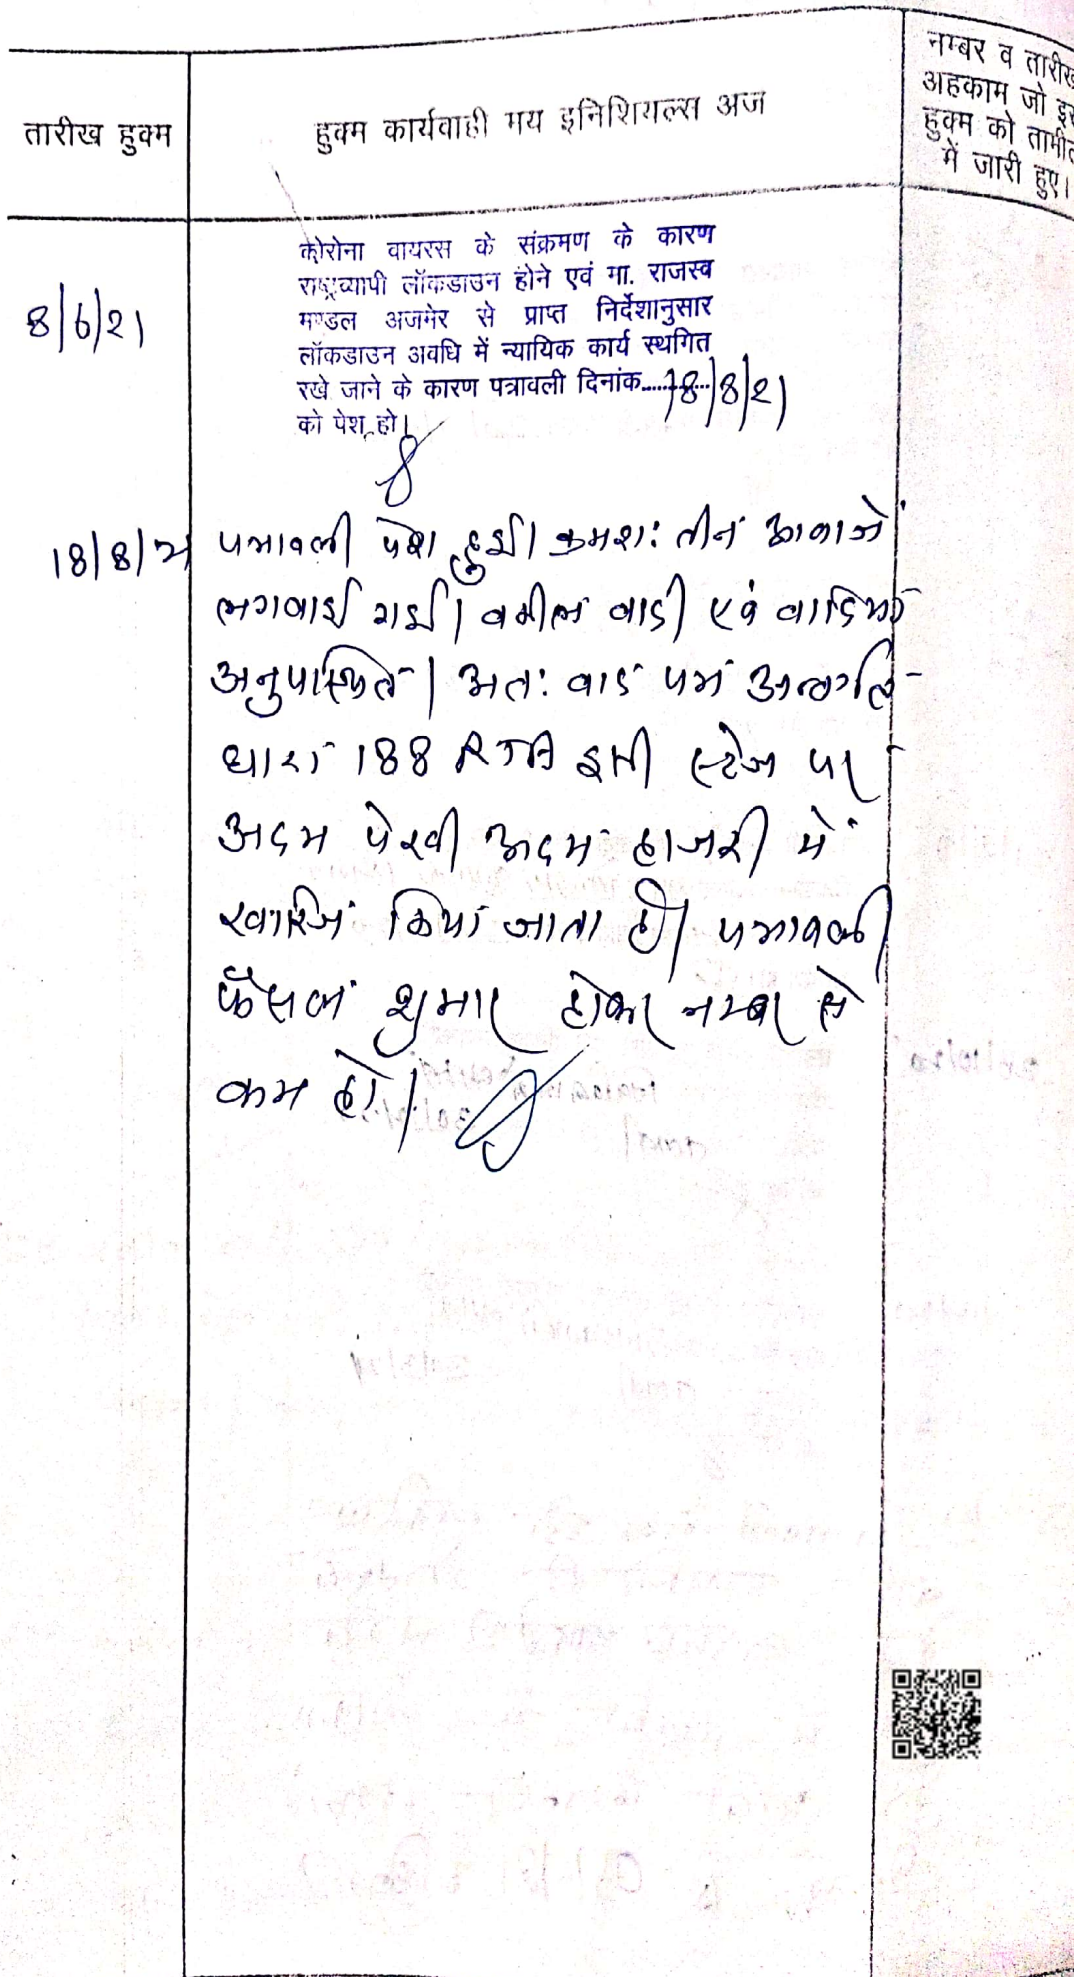 तारीख हुक्म
हुक्म कार्यवाही मय इनिशियल्स अज
नम्बर व तारीख
अहकाम जो इस
हुक्म को तामील
में जारी हुए।
8/6/21
कोरोना वायरस के संक्रमण के कारण
राष्ट्रव्यापी लॉकडाउन होने एवं मा. राजस्व
मण्डल अजमेर से प्राप्त निर्देशानुसार
लॉकडाउन अवधि में न्यायिक कार्य स्थगित
रखे जाने के कारण पत्रावली दिनांक.......18/8/21
को पेश हो।
18/8/21
पत्रावली पेश हुई। क्रमशः तीन आवाजें
लगवाई गई। वकील वादी एवं वादिया
अनुपस्थित। अतः वाद पत्र अन्तर्गत
धारा 188 RTA इसी स्टेज पर
अदम पेरवी अदम हाजरी में
खारिज किया जाता है। पत्रावली
फैसल शुमार होकर नम्बर से
कम हो।